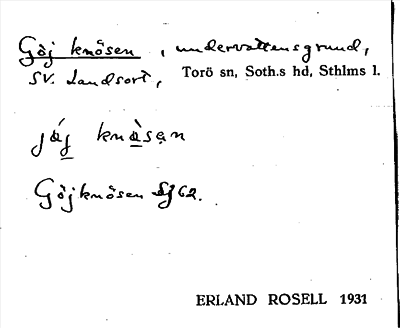 Göj knösen, undervattensgrund,
SV. Landsort, Torö sn, Soth.s hd, Sthlms l.
jȧj knȧsen
Göjknösen Sj 62.
ERLAND ROSELL 1931